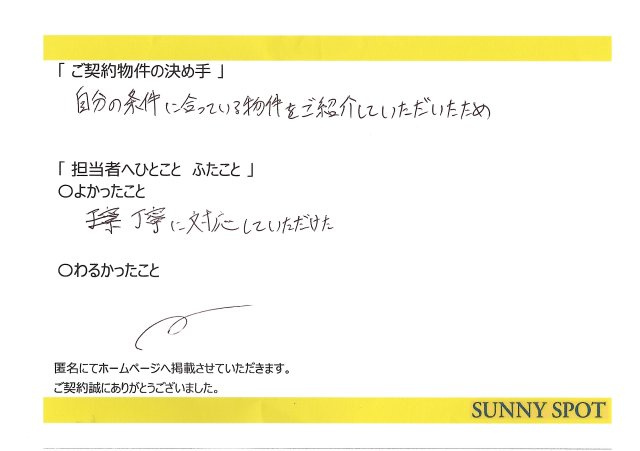 「 ご契約物件の決め手 」
自分の条件に合っている物件をご紹介していただいたため
「 担当者へひとこと ふたこと 」
○よかったこと
丁寧に対応していただけた
○わるかったこと
匿名にてホームページへ掲載させていただきます。
ご契約誠にありがとうございました。
SUNNY SPOT